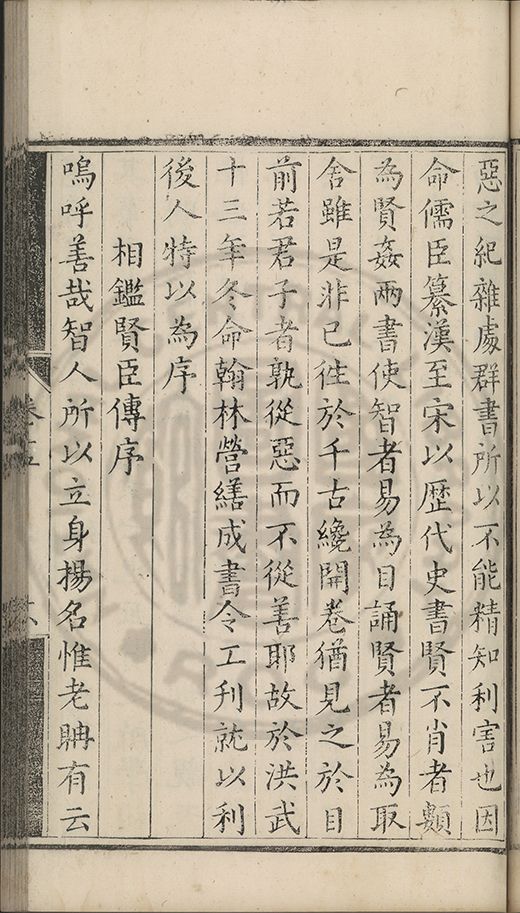 惡之紀雜處群書所以不能精知利害也因
命儒臣纂漢至宋以歷代史書賢不肖者類
為賢姦兩書使智者易為目誦賢者易為取
舍雖是非已徃於千古纔開卷猶見之於目
前若君子者孰從惡而不從善耶故於洪武
十三年冬命翰林營繕成書令工刋就以利
後人特以為序
相鑑賢臣傳序
嗚呼善哉智人所以立身揚名惟老聃有云